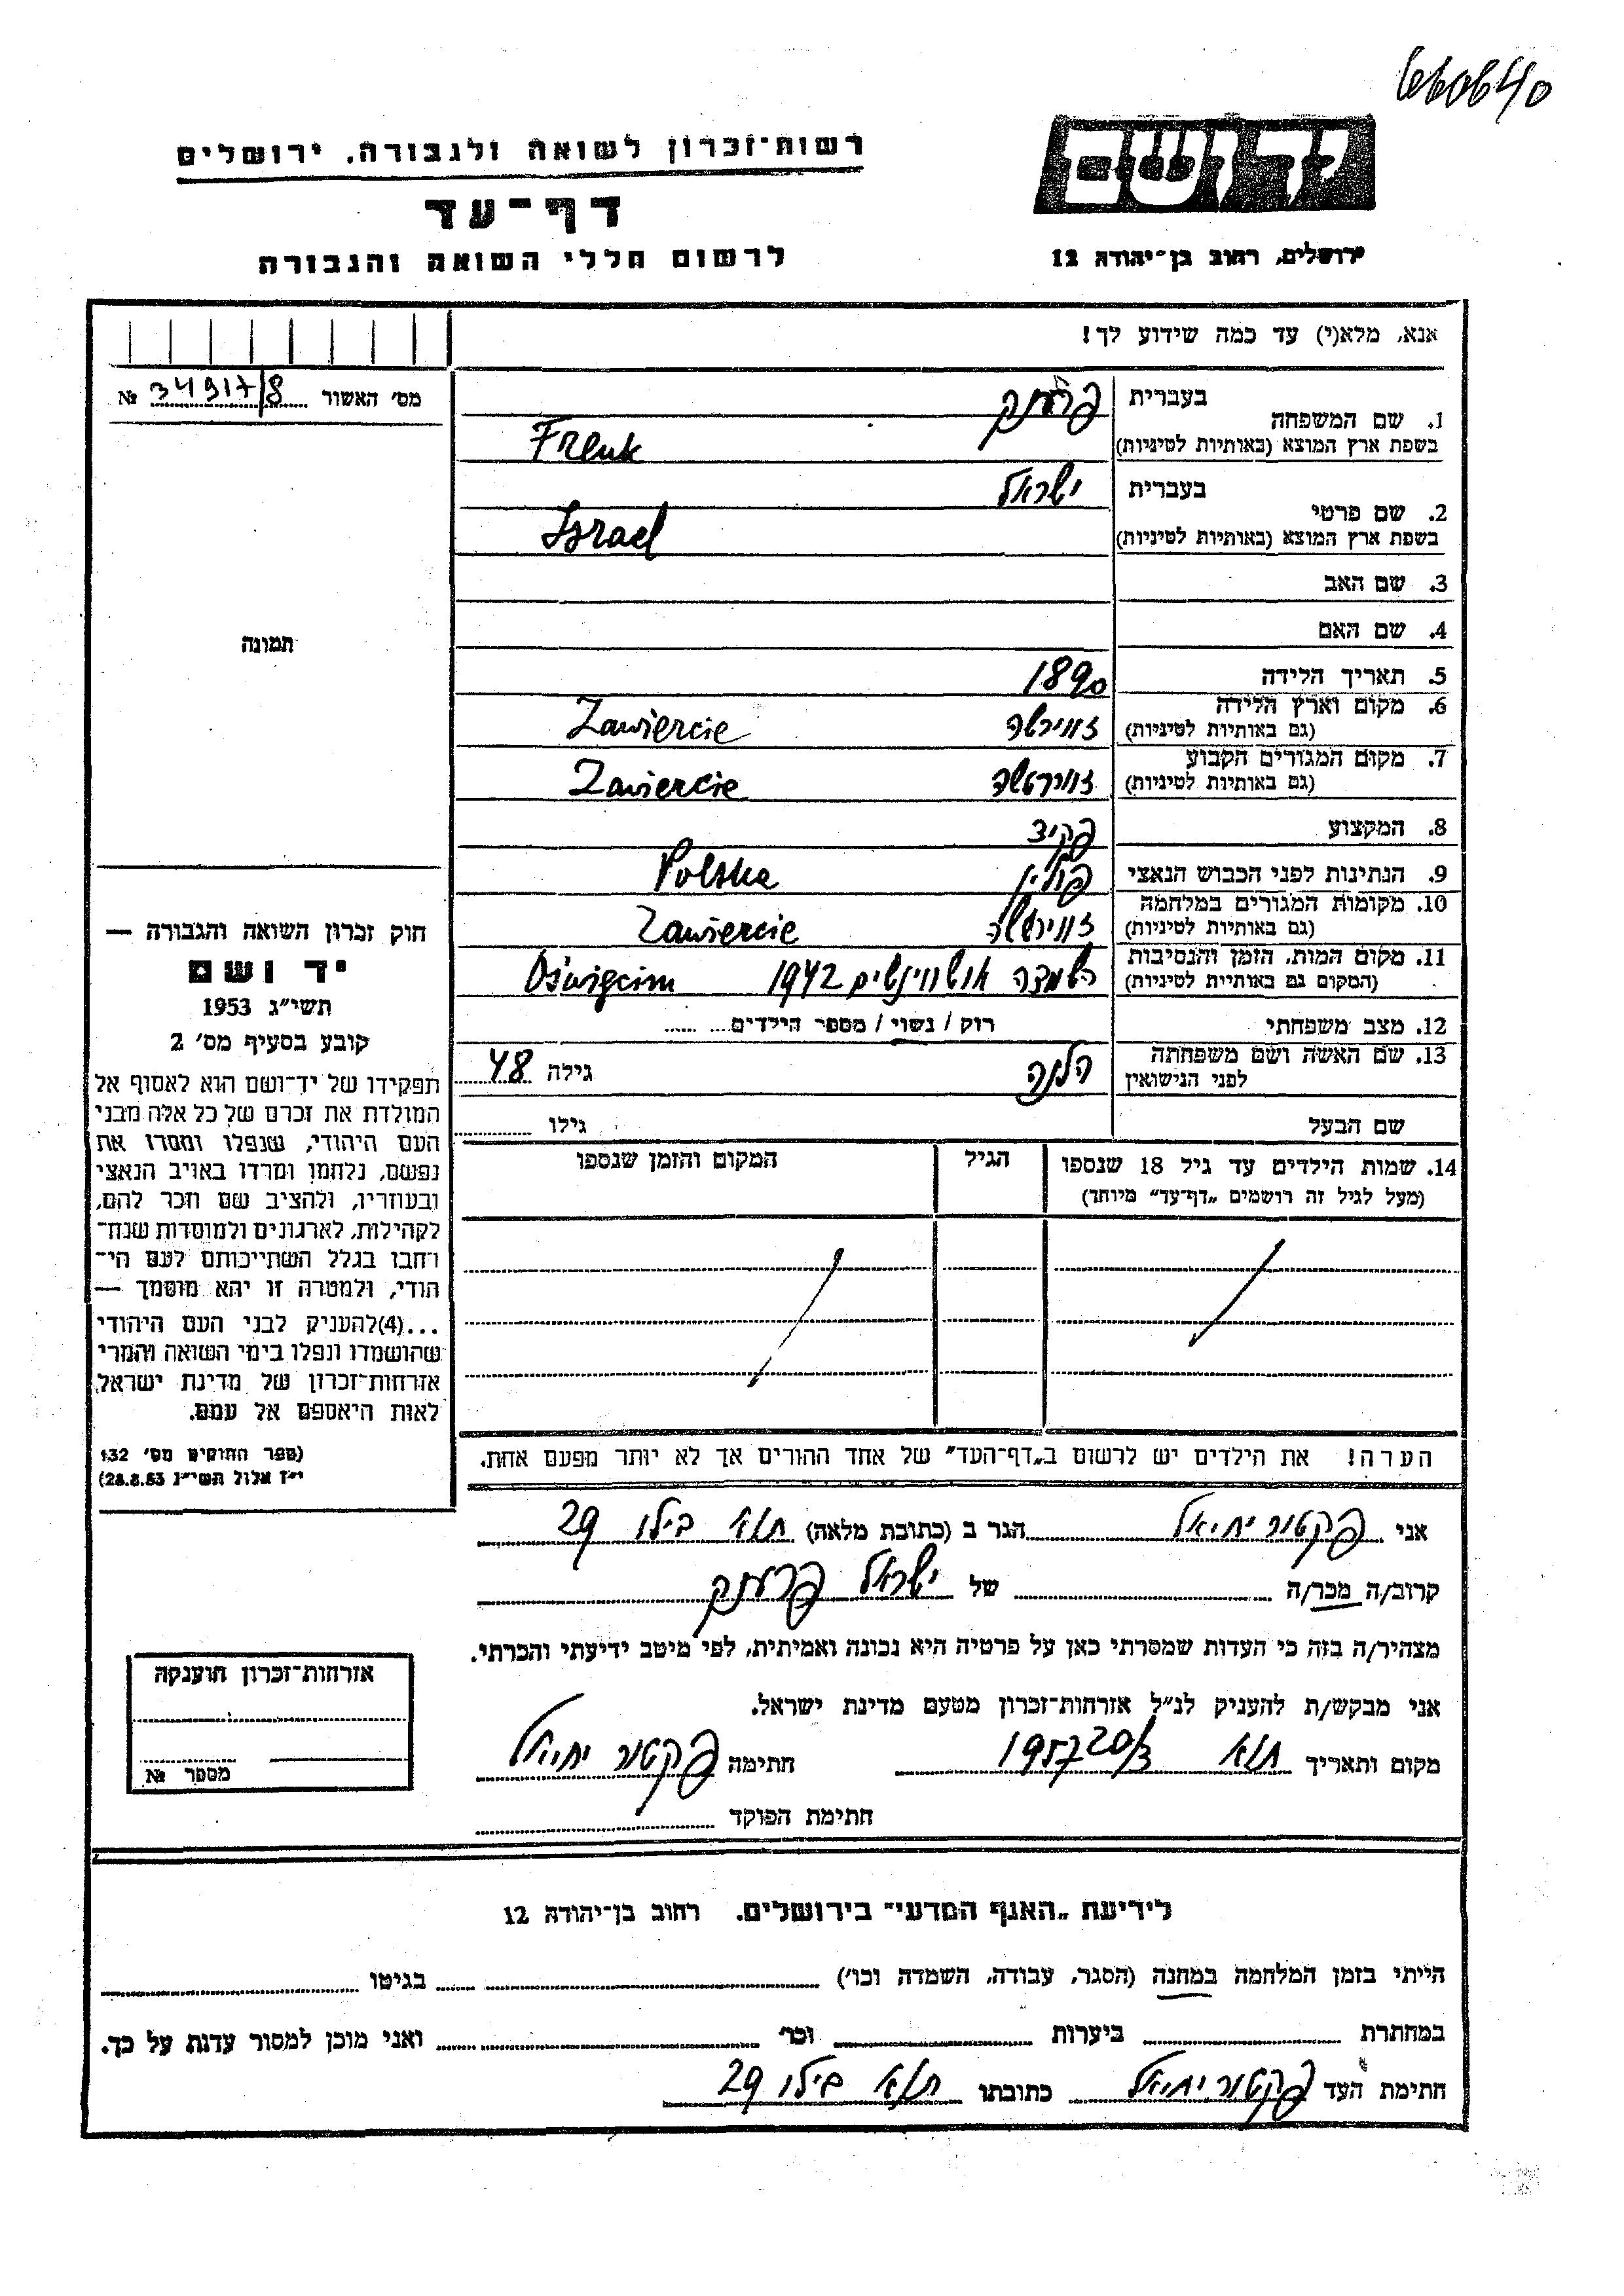 660640
יד ושם
רשות־זכרון לשואה ולגבורה, ירושלים
דף־עד
לרשום חללי השואה והגבורה
ירושלים, רחוב בן־יהודה 12
אנא, מלא(י) עד כמה שידוע לך!
מס׳ האשור 34917/8 №
1. שם המשפחה בעברית פרענק
בשפת ארץ המוצא (באותיות לטיניות) Frenk
2. שם פרטי בעברית ישראל
בשפת ארץ המוצא (באותיות לטיניות) Israel
3. שם האב
4. שם האם
תמונה
5. תאריך הלידה 1890
6. מקום וארץ הלידה (גם באותיות לטיניות) זווירטשה Zawiercie
7. מקום המגורים הקבוע (גם באותיות לטיניות) זווירטשה Zawiercie
8. המקצוע פקיד
9. הנתינות לפני הכבוש הנאצי פולין Polska
10. מקומות המגורים במלחמה (גם באותיות לטיניות) זווירטשה Zawiercie
11. מקום המות, הזמן והנסיבות (המקום גם באותיות לטיניות) השמדה אושווינצים 1942 Oświęcim
12. מצב משפחתי רוק / נשוי / מספר הילדים
13. שם האשה ושם משפחתה לפני הנישואין הלנה גילה 48
שם הבעל גילו
14. שמות הילדים עד גיל 18 שנספו הגיל המקום והזמן שנספו
(מעל לגיל זה רושמים „דף־עד״ מיוחד)
חוק זכרון השואה והגבורה —
יד ושם
תשי״ג 1953
קובע בסעיף מס׳ 2
תפקידו של יד־ושם הוא לאסוף אל
המולדת את זכרם של כל אלה מבני
העם היהודי, שנפלו ומסרו את
נפשם, נלחמו ומרדו באויב הנאצי
ובעוזריו, ולהציב שם וזכר להם,
לקהילות, לארגונים ולמוסדות שנח־
רחבו בגלל השתייכותם לעם הי־
הודי, ולמטרה זו יהא מוסמך —
...(4)להעניק לבני העם היהודי
שהושמדו ונפלו בימי השואה והמרי
אזרחות־זכרון של מדינת ישראל,
לאות היאספם אל עמם.
(ספר החוקים מס׳ 132
י״ז אלול תשי״ג 28.8.53)
הערה! את הילדים יש לרשום ב„דף־העד״ של אחד ההורים אך לא יותר מפעם אחת.
אני פקטור יחיאל הגר ב (כתובת מלאה) ת״א בילו 29
קרוב/ה מכר/ה של ישראל פרענק
מצהיר/ה בזה כי העדות שמסרתי כאן על פרטיה היא נכונה ואמיתית, לפי מיטב ידיעתי והכרתי.
אני מבקש/ת להעניק לנ״ל אזרחות־זכרון מטעם מדינת ישראל.
מקום ותאריך ת״א 20/3 1957 חתימה פקטור יחיאל
חתימת הפוקד
אזרחות־זכרון הוענקה
מספר №
לידיעת „האגף המדעי״ בירושלים, רחוב בן־יהודה 12
הייתי בזמן המלחמה במחנה (הסגר, עבודה, השמדה וכו׳) בגיטו
במחתרת ביערות וכו׳ ואני מוכן למסור עדות על כך.
חתימת העד פקטור יחיאל כתובתו ת״א בילו 29